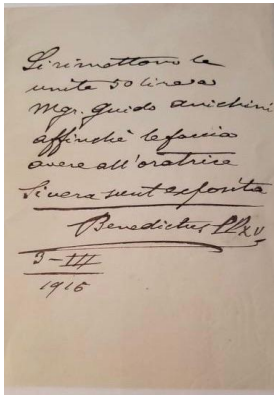 Si rimettono le
unite 50 lire a
Mgr. Guido Anichini
affinchè le faccia
avere all'oratrice
Si vera sunt exposita
Benedictus PP XV
3-III
1916